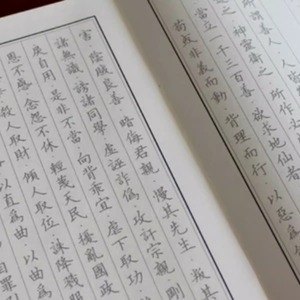 謂善人 人皆
之 神靈衛之 所作必
當立一千三百善 欲求地仙者
苟或非義而動 背理而行 以惡為
害 陰賊良善 暗侮君親 慢其先生 叛其
諸無識 謗諸同學 虛誣詐偽 攻訐宗親 剛
戾自用 是非不當 向背乖宜 虐下取功
恩不感 念怨不休 輕蔑天民 擾亂國政
殺人取財 傾人取位 誅降戮服
以直為曲 以曲為
自罪